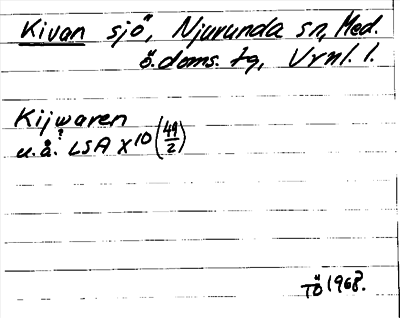 Kivan sjö, Njurunda sn, Med.
ö. doms. tg, Vrnl. l.
Kijwaren
?
u.å. LSA X10 (49/2)
TÖ 1968.